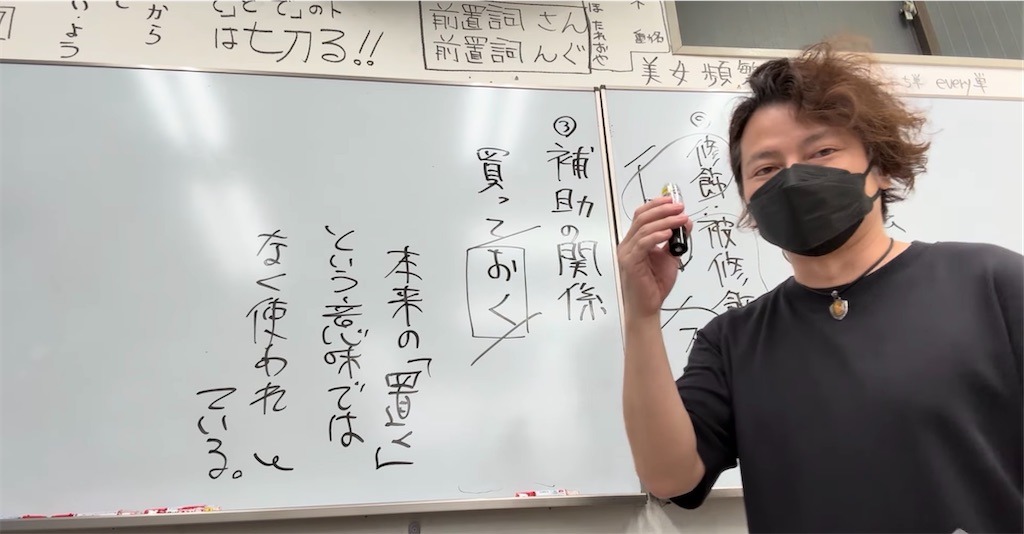 から
は七刀る!!
前置詞さん
前置詞んぐ
動名
美女頻繁
every単
③補助の関係
買っておく
本来の「置く」
という意味では
なく使われ
ている。
修飾・被修飾